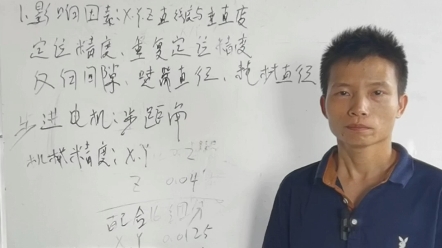 1.影响因素:X.Y.Z直线度与垂直度
定位精度、重复定位精度
反向间隙、喷嘴直径、耗材直径
步进电机:步距角
机械精度:X.Y
Z 0.04°
配合16细分
X Y 0.0125